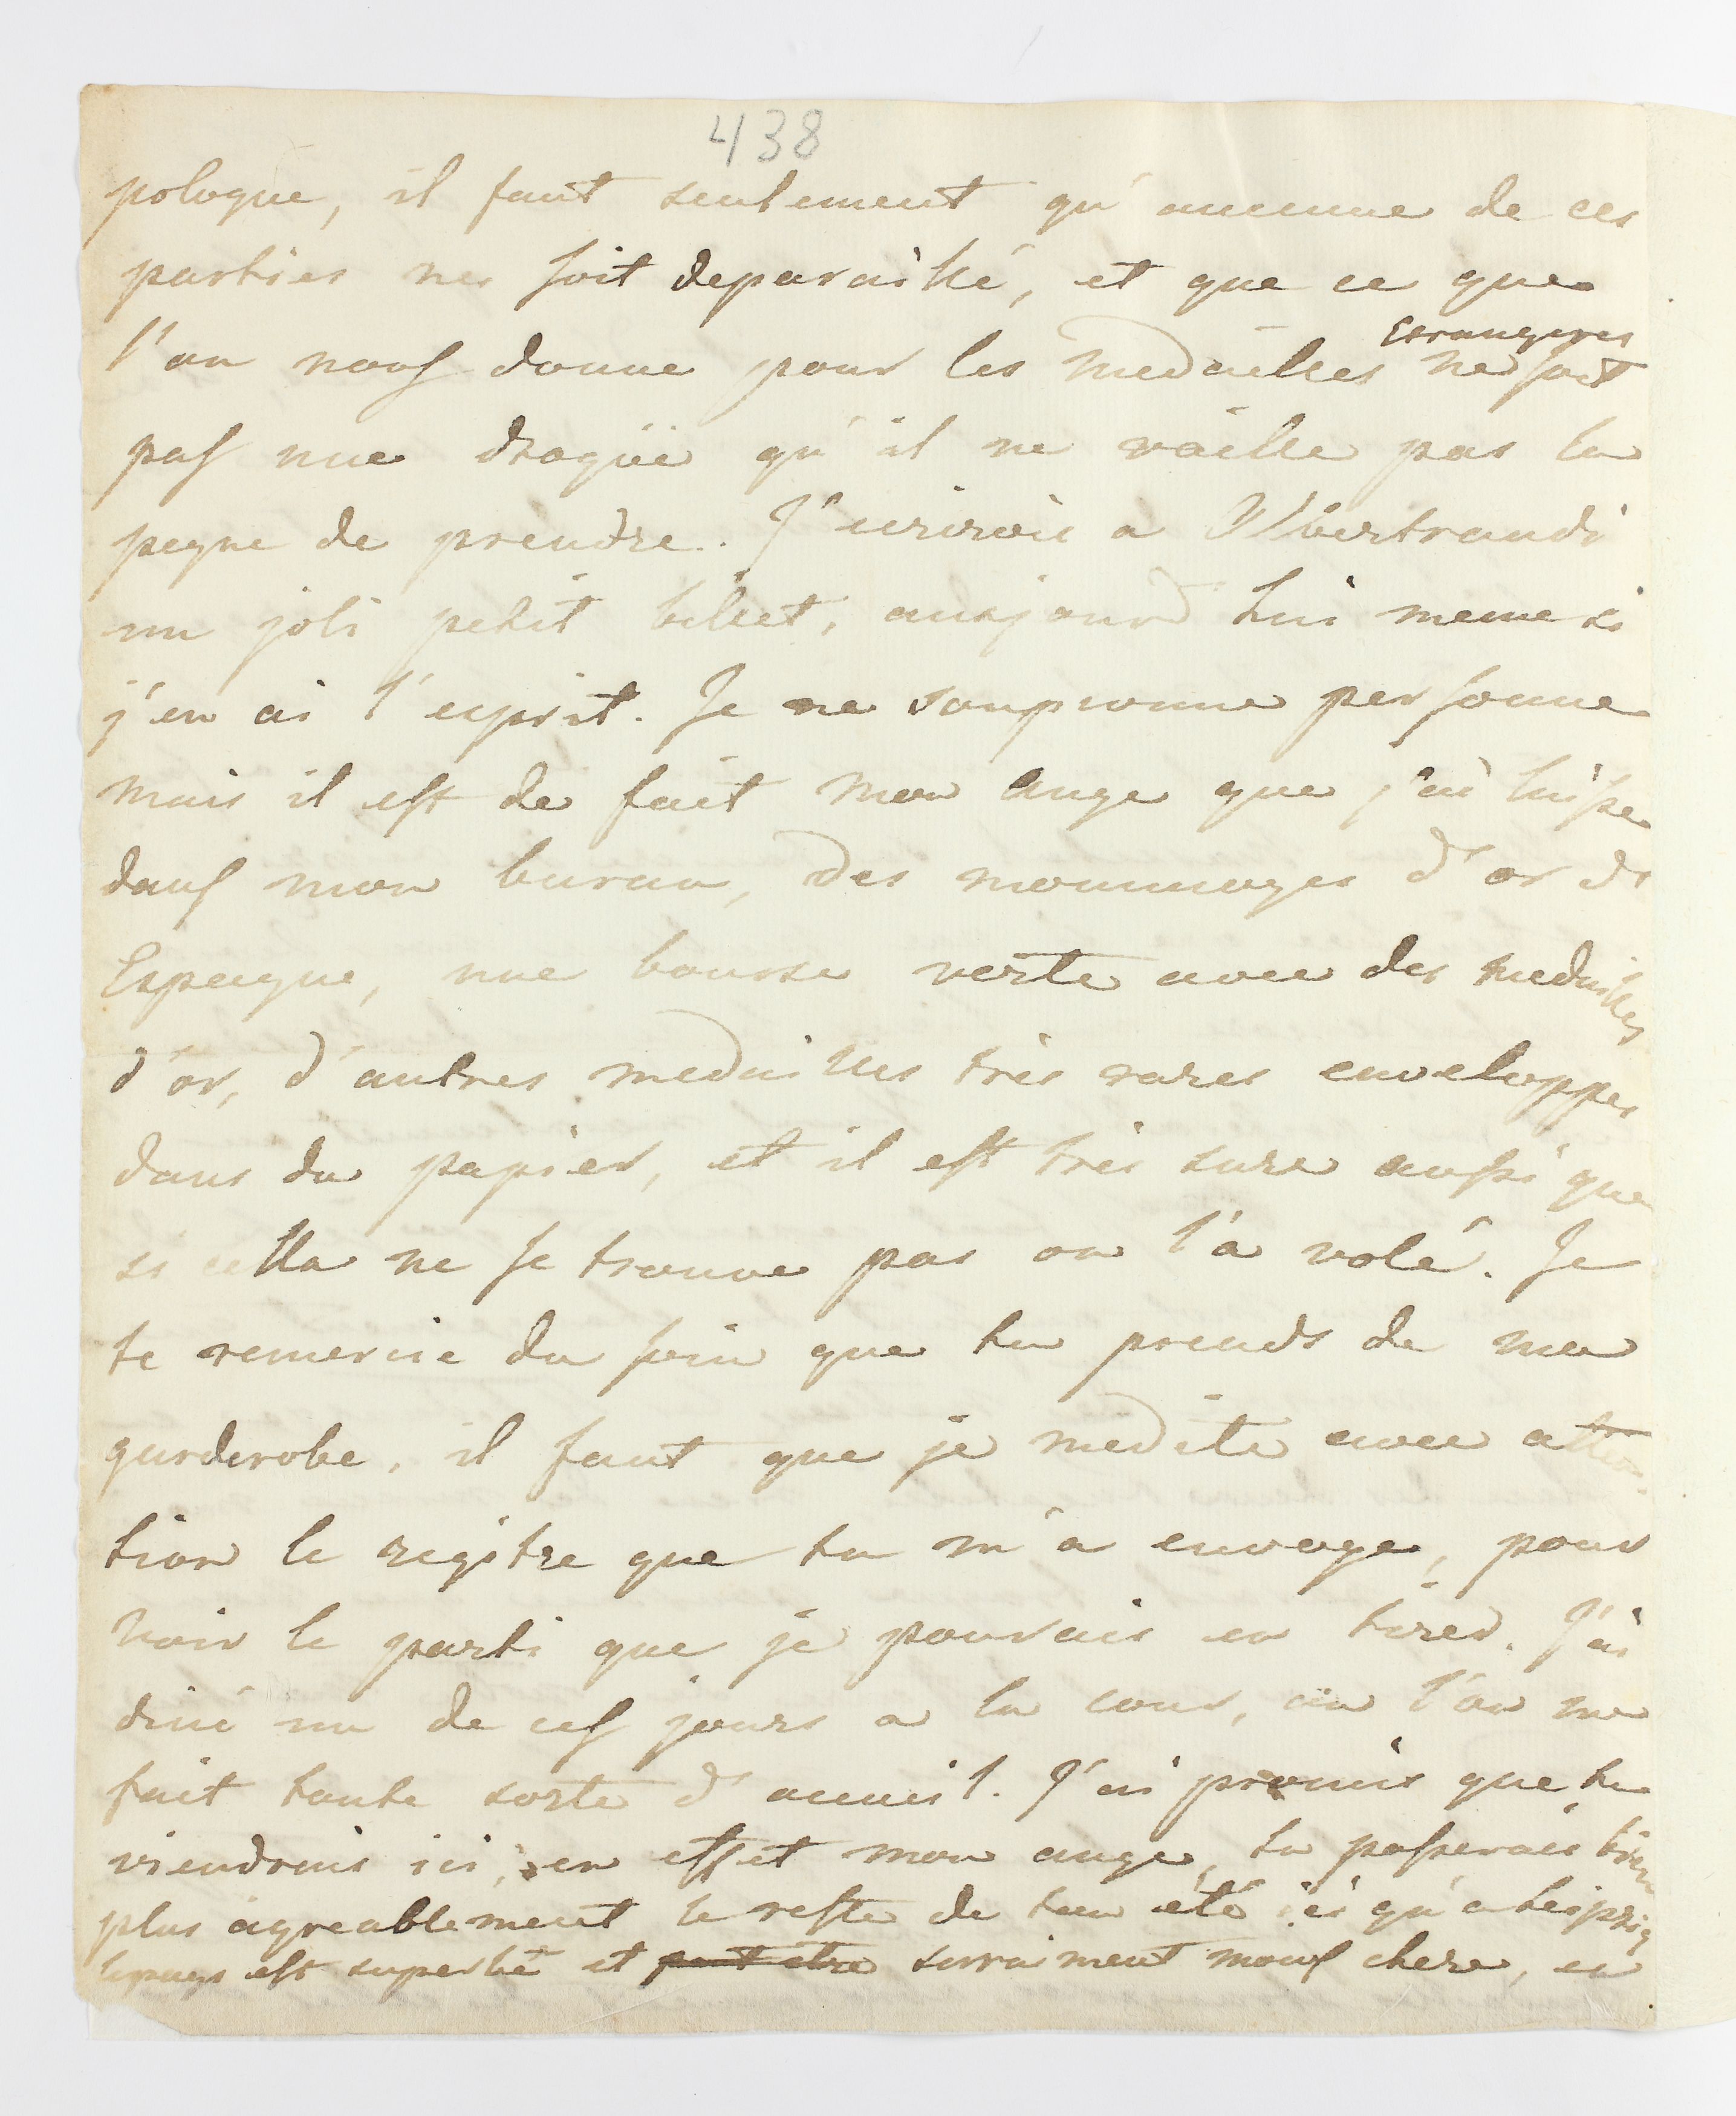 438
pologne, il faut seulement qu'aucune de ces
parties ne soit depareillé, et que ce que
l'on nous donne pour les medailles Etrangeres ne soit
pas une dragée qu'il ne vaille pas la
peyne de prendre. J'ecrirois a Albertrandi
un joli petit billet, aujourd hui meme si
j'en ai l'esprit. Je ne soupconne personne
mais il est de fait mon Ange que j'ai laisse
dans mon bureau, des monnoyes d'or d'
Espagne, une bourse verte avec des medailles
d'or, d'autres medailles très rares enveloppes
dans du papier, et il est très sure aussi que
si cella ne se trouve pas on l'a volé. Je
te remercie du soin que tu prends de ma
garderobe, il faut que je medite avec atten
tion le regitre que tu m'a envoye, pour
voir le parti que je pourrais en tirer. J'ai
diné un de ces jours a la cour, où l'on me
fait toute sorte d'acueil. J'ai promis que tu
viendrais ici, en effet mon ange, tu passerais bien
plus agreablement le reste de ton été ici qu'a Leipzig
le pays est superbe et peut etre surement moins chere, en